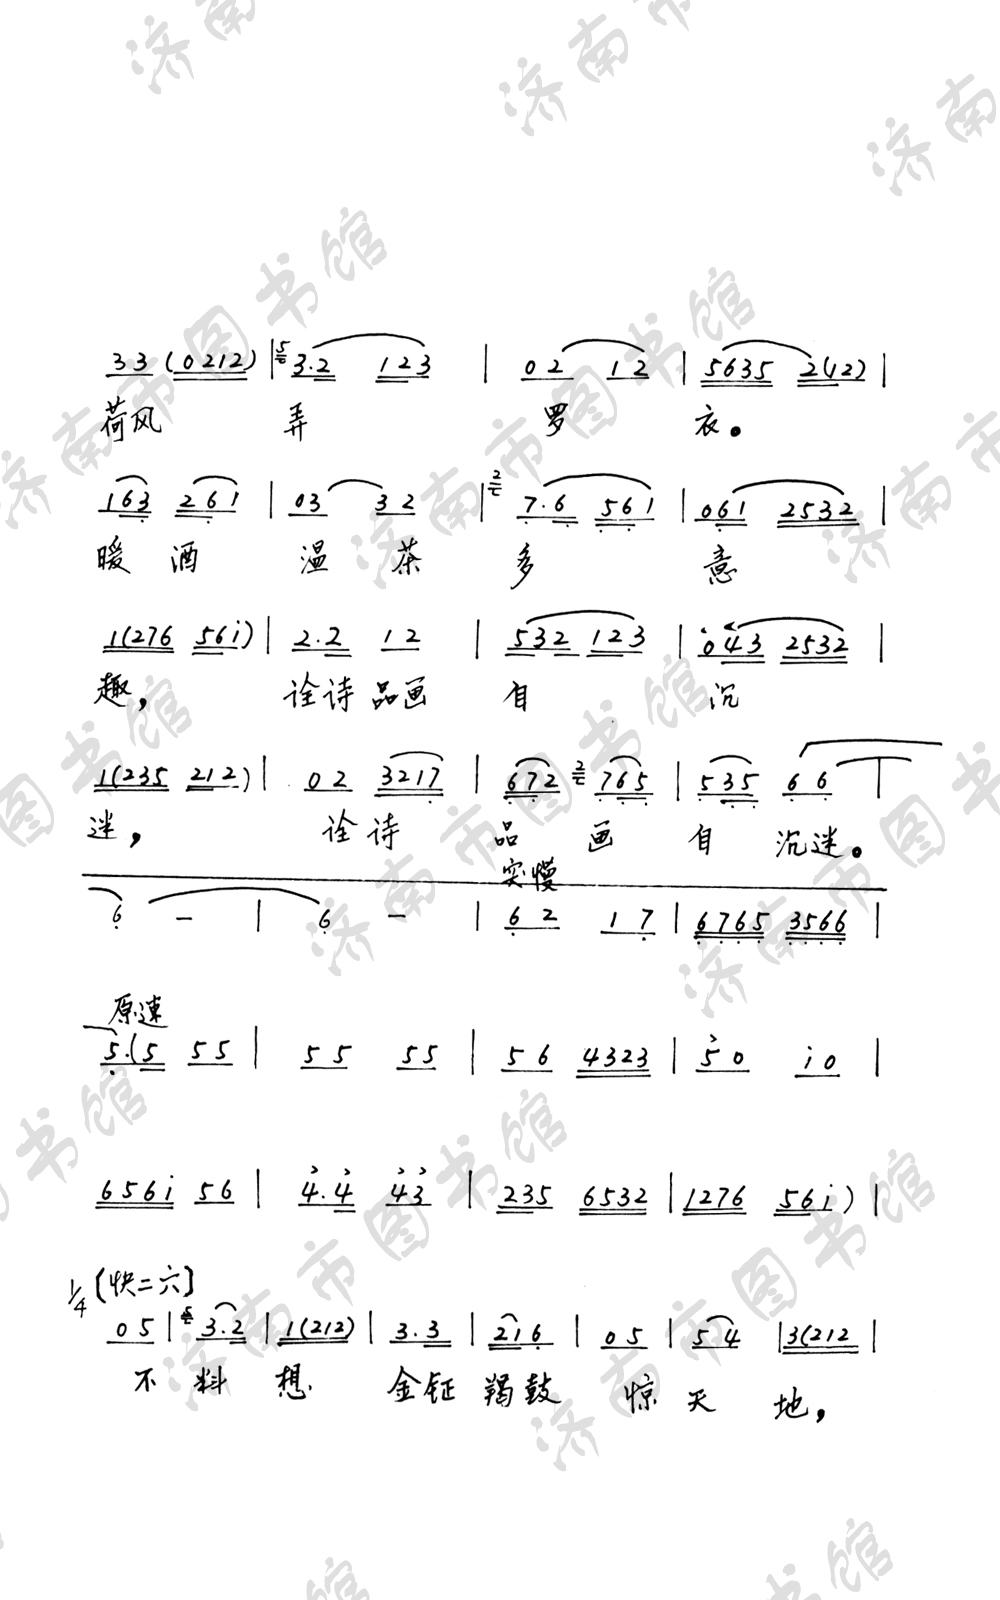 33 (0212) | 5 3.2 123 | 02 12 | 5635 2(12) |
荷风 弄 罗 衣。
163 261 | 03 32 | 2 7.6 561 | 061 2532 |
暖 酒 温 茶 多 意
1(276 56i) | 2.2 12 | 532 123 | 043 2532 |
趣， 诠诗 品画 自 沉
1(235 212) | 02 3217 | 672 2 765 | 535 66 |
迷， 诠诗 品 画 自 沉迷。
突慢
6 – | 6 – | 62 17 | 6765 3566 |
原速
5.(5 55 | 55 55 | 56 4323 | 50 i0 |
656i 56 | 4.4 43 | 235 6532 | 1276 56i) |
1/4 〔快二六〕
05 | 3.2 | 1(212) | 3.3 | 216 | 05 | 54 | 3(212 |
不 料 想 金钲 羯鼓 惊 天 地，
济南市图书馆